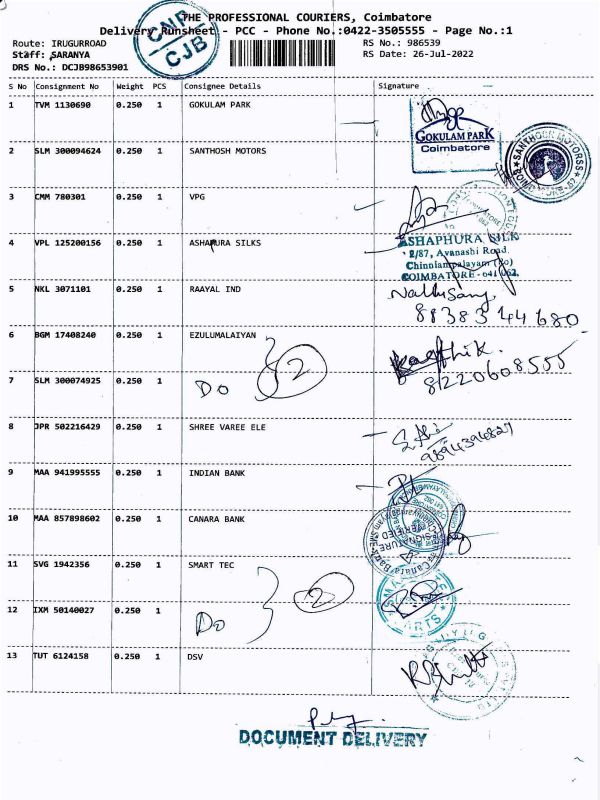 THE PROFESSIONAL COURIERS, Coimbatore
Delivery Runsheet - PCC - Phone No.:0422-3505555 - Page No.:1
CNP
CJB
Route: IRUGURROAD
RS No.: 986539
Staff: SARANYA
RS Date: 26-Jul-2022
DRS No.: DCJB98653901
S No Consignment No Weight PCS Consignee Details Signature
1 TVM 1130690 0.250 1 GOKULAM PARK
GOKULAM PARK
Coimbatore
2 SLM 300094624 0.250 1 SANTHOSH MOTORS
3 CMM 780301 0.250 1 VPG
4 VPL 125200156 0.250 1 ASHAPURA SILKS
ASHAPHURA SILK
2/87, Avanashi Road.
Chinniampalayam (Po)
COIMBATORE - 641 062.
5 NKL 3071101 0.250 1 RAAYAL IND
88383 44680
6 BGM 17408240 0.250 1 EZULUMALAIYAN
Karthik.
8220608555
7 SLM 300074925 0.250 1 Do 2
8 JPR 502216429 0.250 1 SHREE VAREE ELE
9894394827
9 MAA 941995555 0.250 1 INDIAN BANK
10 MAA 857898602 0.250 1 CANARA BANK
SIGNATURE
VERIFIED
Canara Bank
11 SVG 1942356 0.250 1 SMART TEC
12 IXM 50140027 0.250 1 Do 2
13 TUT 6124158 0.250 1 DSV
DOCUMENT DELIVERY